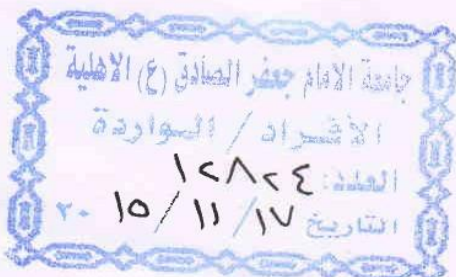 جامعة الامام جعفر الصادق (ع) الاهلية
الأفراد / الواردة
العدد: ١٢٨٢٤
التاريخ ١٧ / ١١ / ٢٠١٥